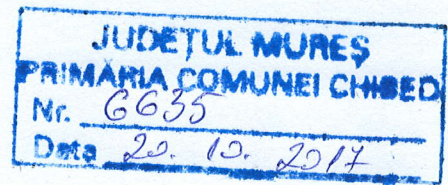 JUDEŢUL MUREŞ
PRIMĂRIA COMUNEI CHIBED
Nr. 6635
Data 20. 10. 2017